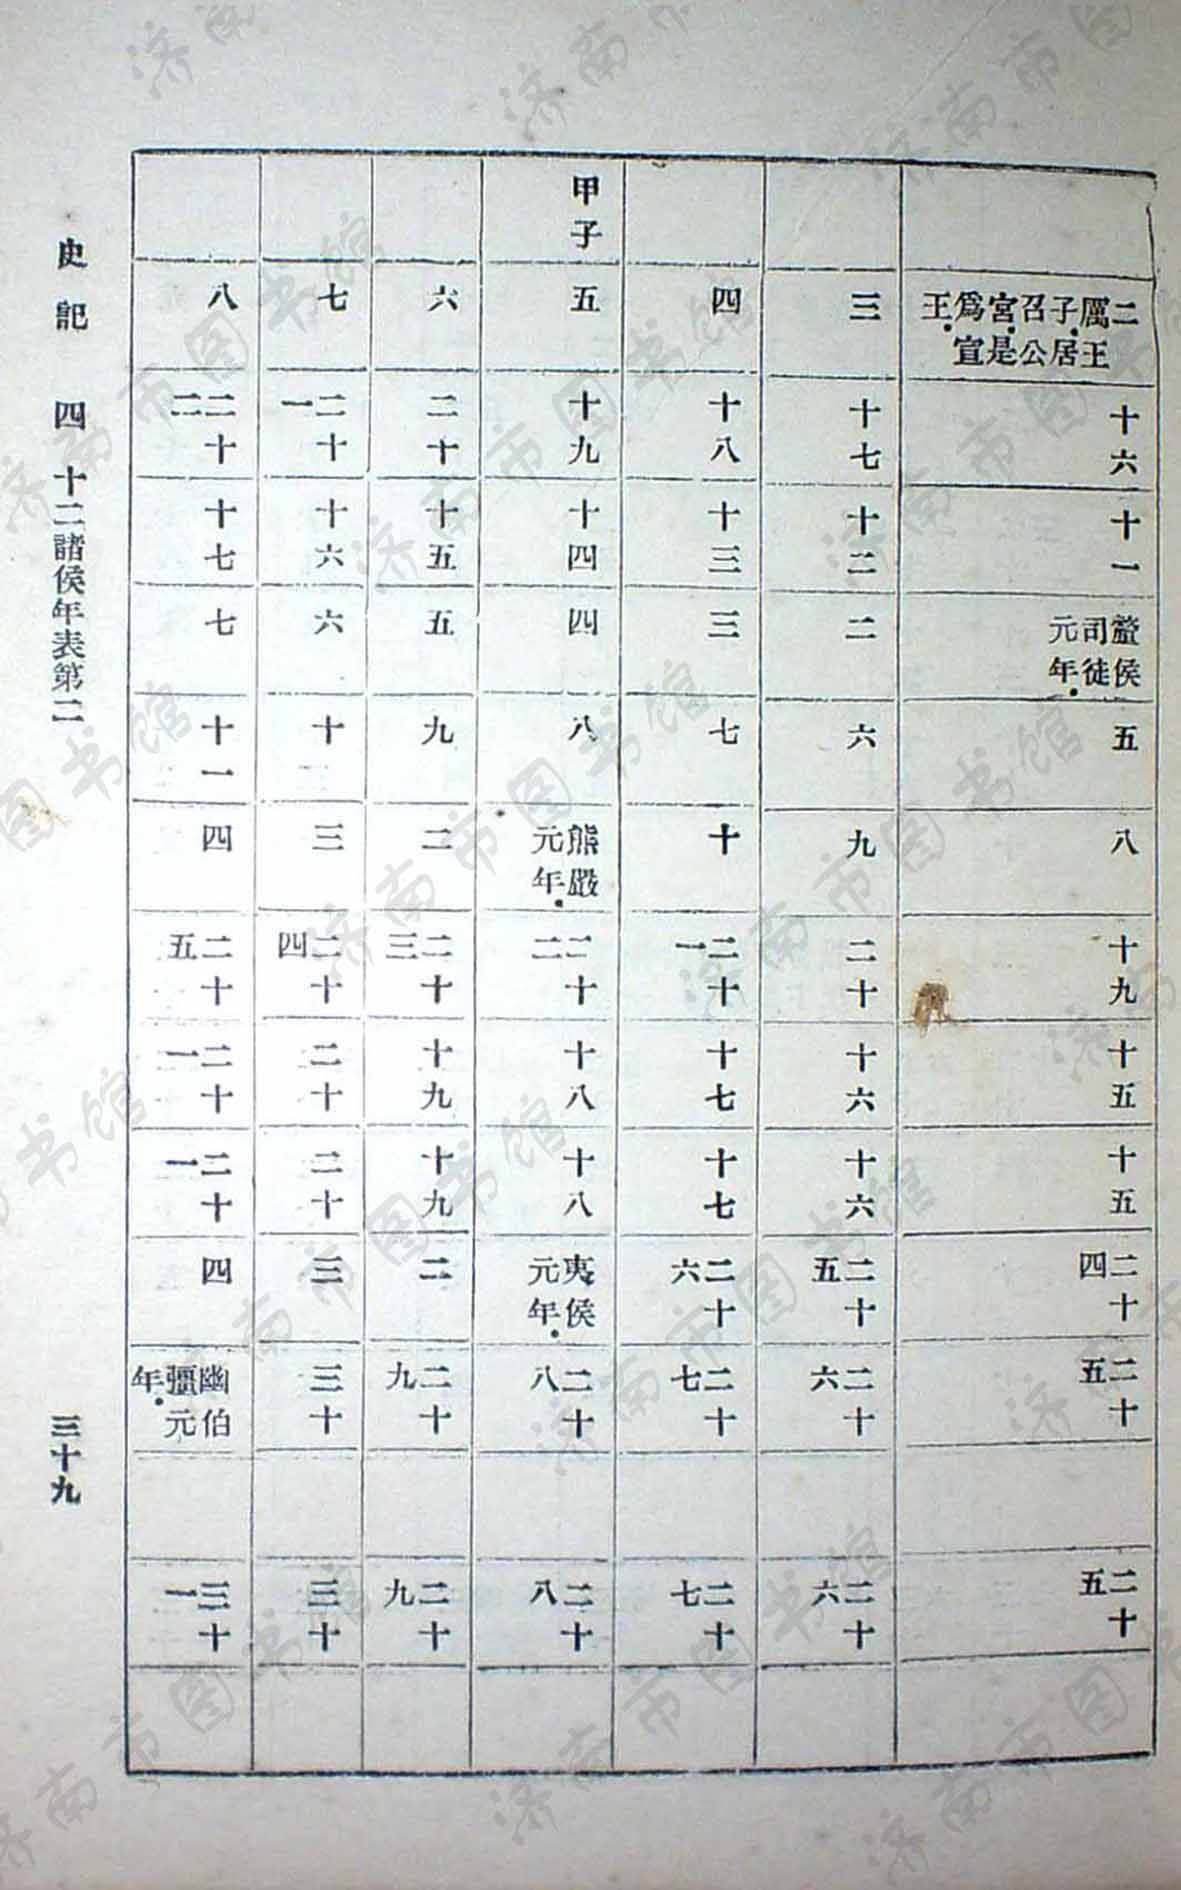 二厲王子居召公宮是爲宣王
十六
十一
釐侯司徒元年
五
八
十九
十五
十五
二十四
二十五
二十五
三
十七
十二
二
六
九
二十
十六
十六
二十五
二十六
二十六
四
十八
十三
三
七
十
二十一
十七
十七
二十六
二十七
二十七
甲子
五
十九
十四
四
八
熊嚴元年
二十二
十八
十八
夷侯元年
二十八
二十八
六
二十
十五
五
九
二
二十三
十九
十九
二
二十九
二十九
七
二十一
十六
六
十
三
二十四
二十
二十
三
三十
三十
八
二十二
十七
七
十一
四
二十五
二十一
二十一
四
幽伯彊元年
三十一
史記 四 十二諸侯年表第二 三十九
济南市图书馆